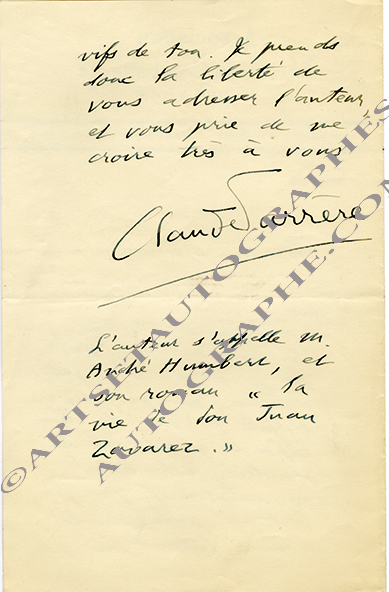 vifs de ton. Je prends
donc la liberté de
vous adresser l'auteur,
et vous prie de me
croire très à vous
Claude Farrère
L'auteur s'appelle M.
André Humbert, et
son roman « la
vie de don Juan
Zavarez. »
©ARTSETAUTOGRAPHES
AUTOGRAPHE.COM